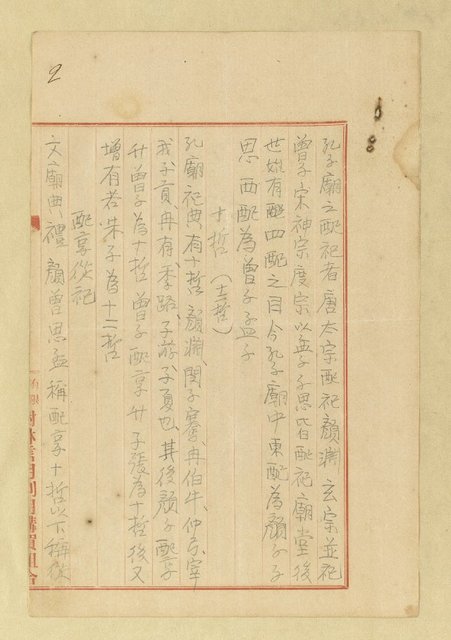 2
孔子廟之配祀者唐太宗配祀顏淵玄宗並祀
曾子宋神宗度宗以孟子子思皆配祀廟堂後
世始有配四配之目今孔子廟中東配為顏子子
思西配為曾子孟子
十哲(十二哲)
孔廟祀典有十哲顏淵、閔子騫、冉伯牛、仲弓、宰
我、子貢、冉有、季路、子游、子夏也其後顏子配享
升曾子為十哲曾子配享升子張為十哲後又
增有若、朱子為十二哲
配享從祀
文廟典禮顏曾思孟稱配享十哲以下稱從
有限 樹林信用利用購買組合